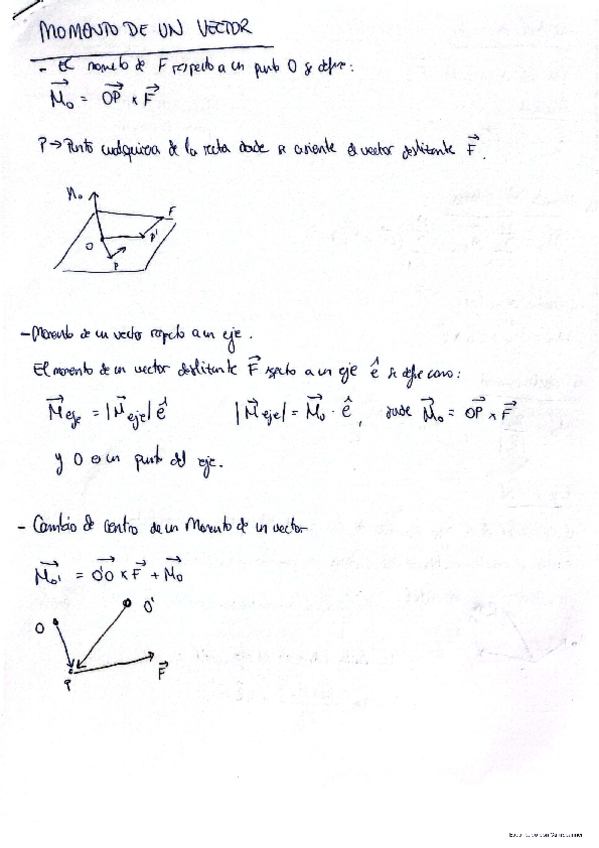 MOMENTO DE UN VECTOR
- El momento de F respecto a un punto O se define:
M⃗o = OP⃗ x F⃗
P → Punto cualquiera de la recta donde se asiente el vector deslizante F⃗.
Mo
F
O
P'
P
- Momento de un vector respecto a un eje.
El momento de un vector deslizante F⃗ respecto a un eje ê se define como:
M⃗eje = |M⃗eje| ê |M⃗eje| = M⃗o · ê, donde M⃗o = OP⃗ x F⃗
y O es un punto del eje.
- Cambio de Centro de un Momento de un vector
M⃗o' = O'O⃗ x F⃗ + M⃗o
O'
O
P
F⃗